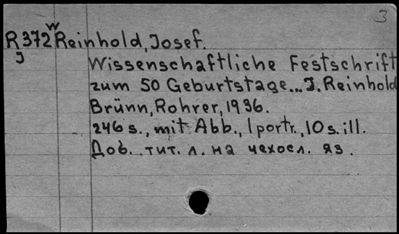 3
W
R372 Reinhold, Josef.
J
Wissenschaftliche Festschrift
zum 50 Geburtstage... J. Reinhold
Brünn, Rohrer, 1936.
246 s., mit Abb., 1 portr., 10 s. ill.
Доб. тит. л. на чехосл. яз.